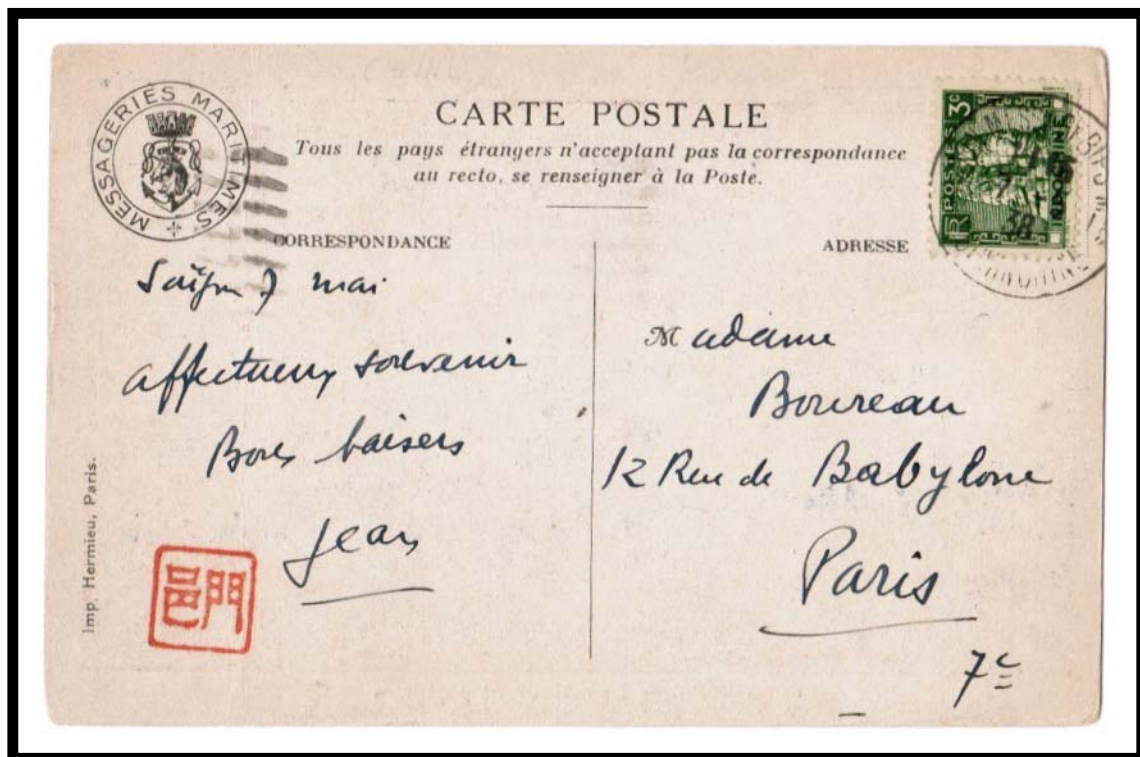 MESSAGERIES MARITIMES
CARTE POSTALE
Tous les pays étrangers n'acceptant pas la correspondance
au recto, se renseigner à la Poste.
CORRESPONDANCE
Saïgon 7 mai
affectueux souvenir
Bons baisers
Jean
門邑
Imp. Hermieu, Paris.
ADRESSE
Madame
Boureau
12 Rue de Babylone
Paris
7e
RF POSTES 3c
INDOCHINE
38